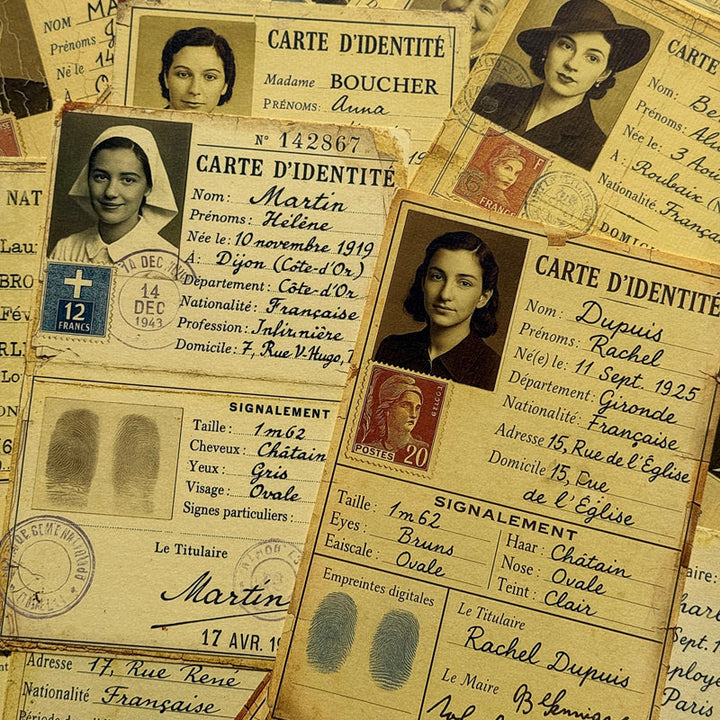 NOM: MA
Prénoms
Né le: 14
à
CARTE D'IDENTITÉ
Madame BOUCHER
PRÉNOMS: Anna
CARTE
Nom: Be
Prénoms: Al
Née le: 3 Aou
À: Roubaix (N
Nationalité:
Française
DOMIC
FRANÇAIS
NAT
Laur
BRO
Fév
N° 142867
CARTE D'IDENTITÉ
Nom: Martin
Prénoms: Hélène
Née le: 10 novembre 1919
À: Dijon (Côte-d'Or)
Département: Côte-d'Or
Nationalité: Française
Profession: Infirinière
Domicile: 7, Rue V-Hugo,
12
FRANCS
14 DEC
14
DEC
1943
SIGNALEMENT
Taille: 1m62
Cheveux: Châtain
Yeux: Gris
Visage: Ovale
Signes particuliers:
Le Titulaire
Martin
17 AVR. 1
CARTE D'IDENTITÉ
Nom: Dupuis
Prénoms: Rachel
Né(e) le: 11 Sept. 1925
Département: Gironde
Nationalité: Française
Adresse 15, Rue de l'Église
Domicile 15, Due
de l'Église
POSTES 20
SIGNALEMENT
Taille: 1m62
Eyes: Bruns
Eaiscale: Ovale
Haar: Châtain
Nose: Ovale
Teint: Clair
Empreintes digitales
Le Titulaire
Rachel Dupuis
Le Maire
Adresse 17, Rue Rene
Nationalité Française
Période du
aire:
Sept. 1
ploye
Paris